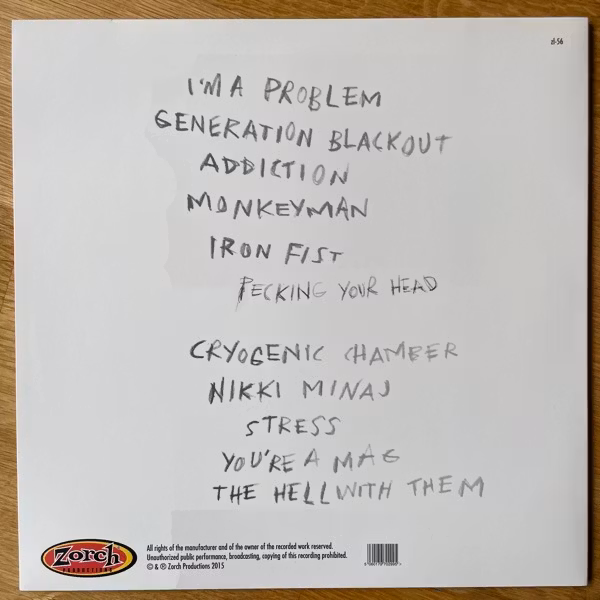 zl-56
I'M A PROBLEM
GENERATION BLACKOUT
ADDICTION
MONKEYMAN
IRON FIST
PECKING YOUR HEAD
CRYOGENIC CHAMBER
NIKKI MINAJ
STRESS
YOU'RE A MAG
THE HELL WITH THEM
Zorch
PRODUCTIONS
All rights of the manufacturer and of the owner of the recorded work reserved.
Unauthorized public performance, broadcasting, copying of this recording prohibited.
© & ℗ Zorch Productions 2015